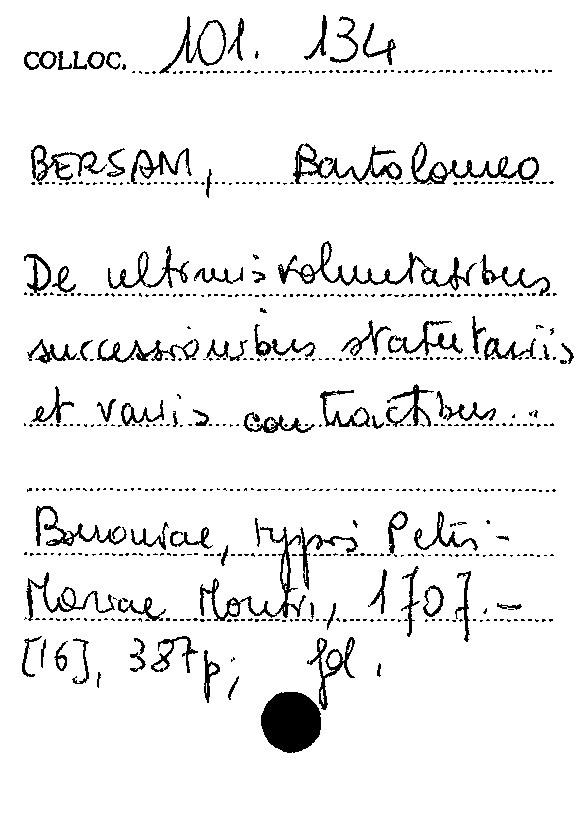 COLLOC. 101. 134
BERSANI, Bartolomeo
De ultimis voluntatibus
successionibus statutariis
et variis contractibus...
Bononiae, typis Petri-
Mariae Monti, 1707.-
[16], 387p; fol.